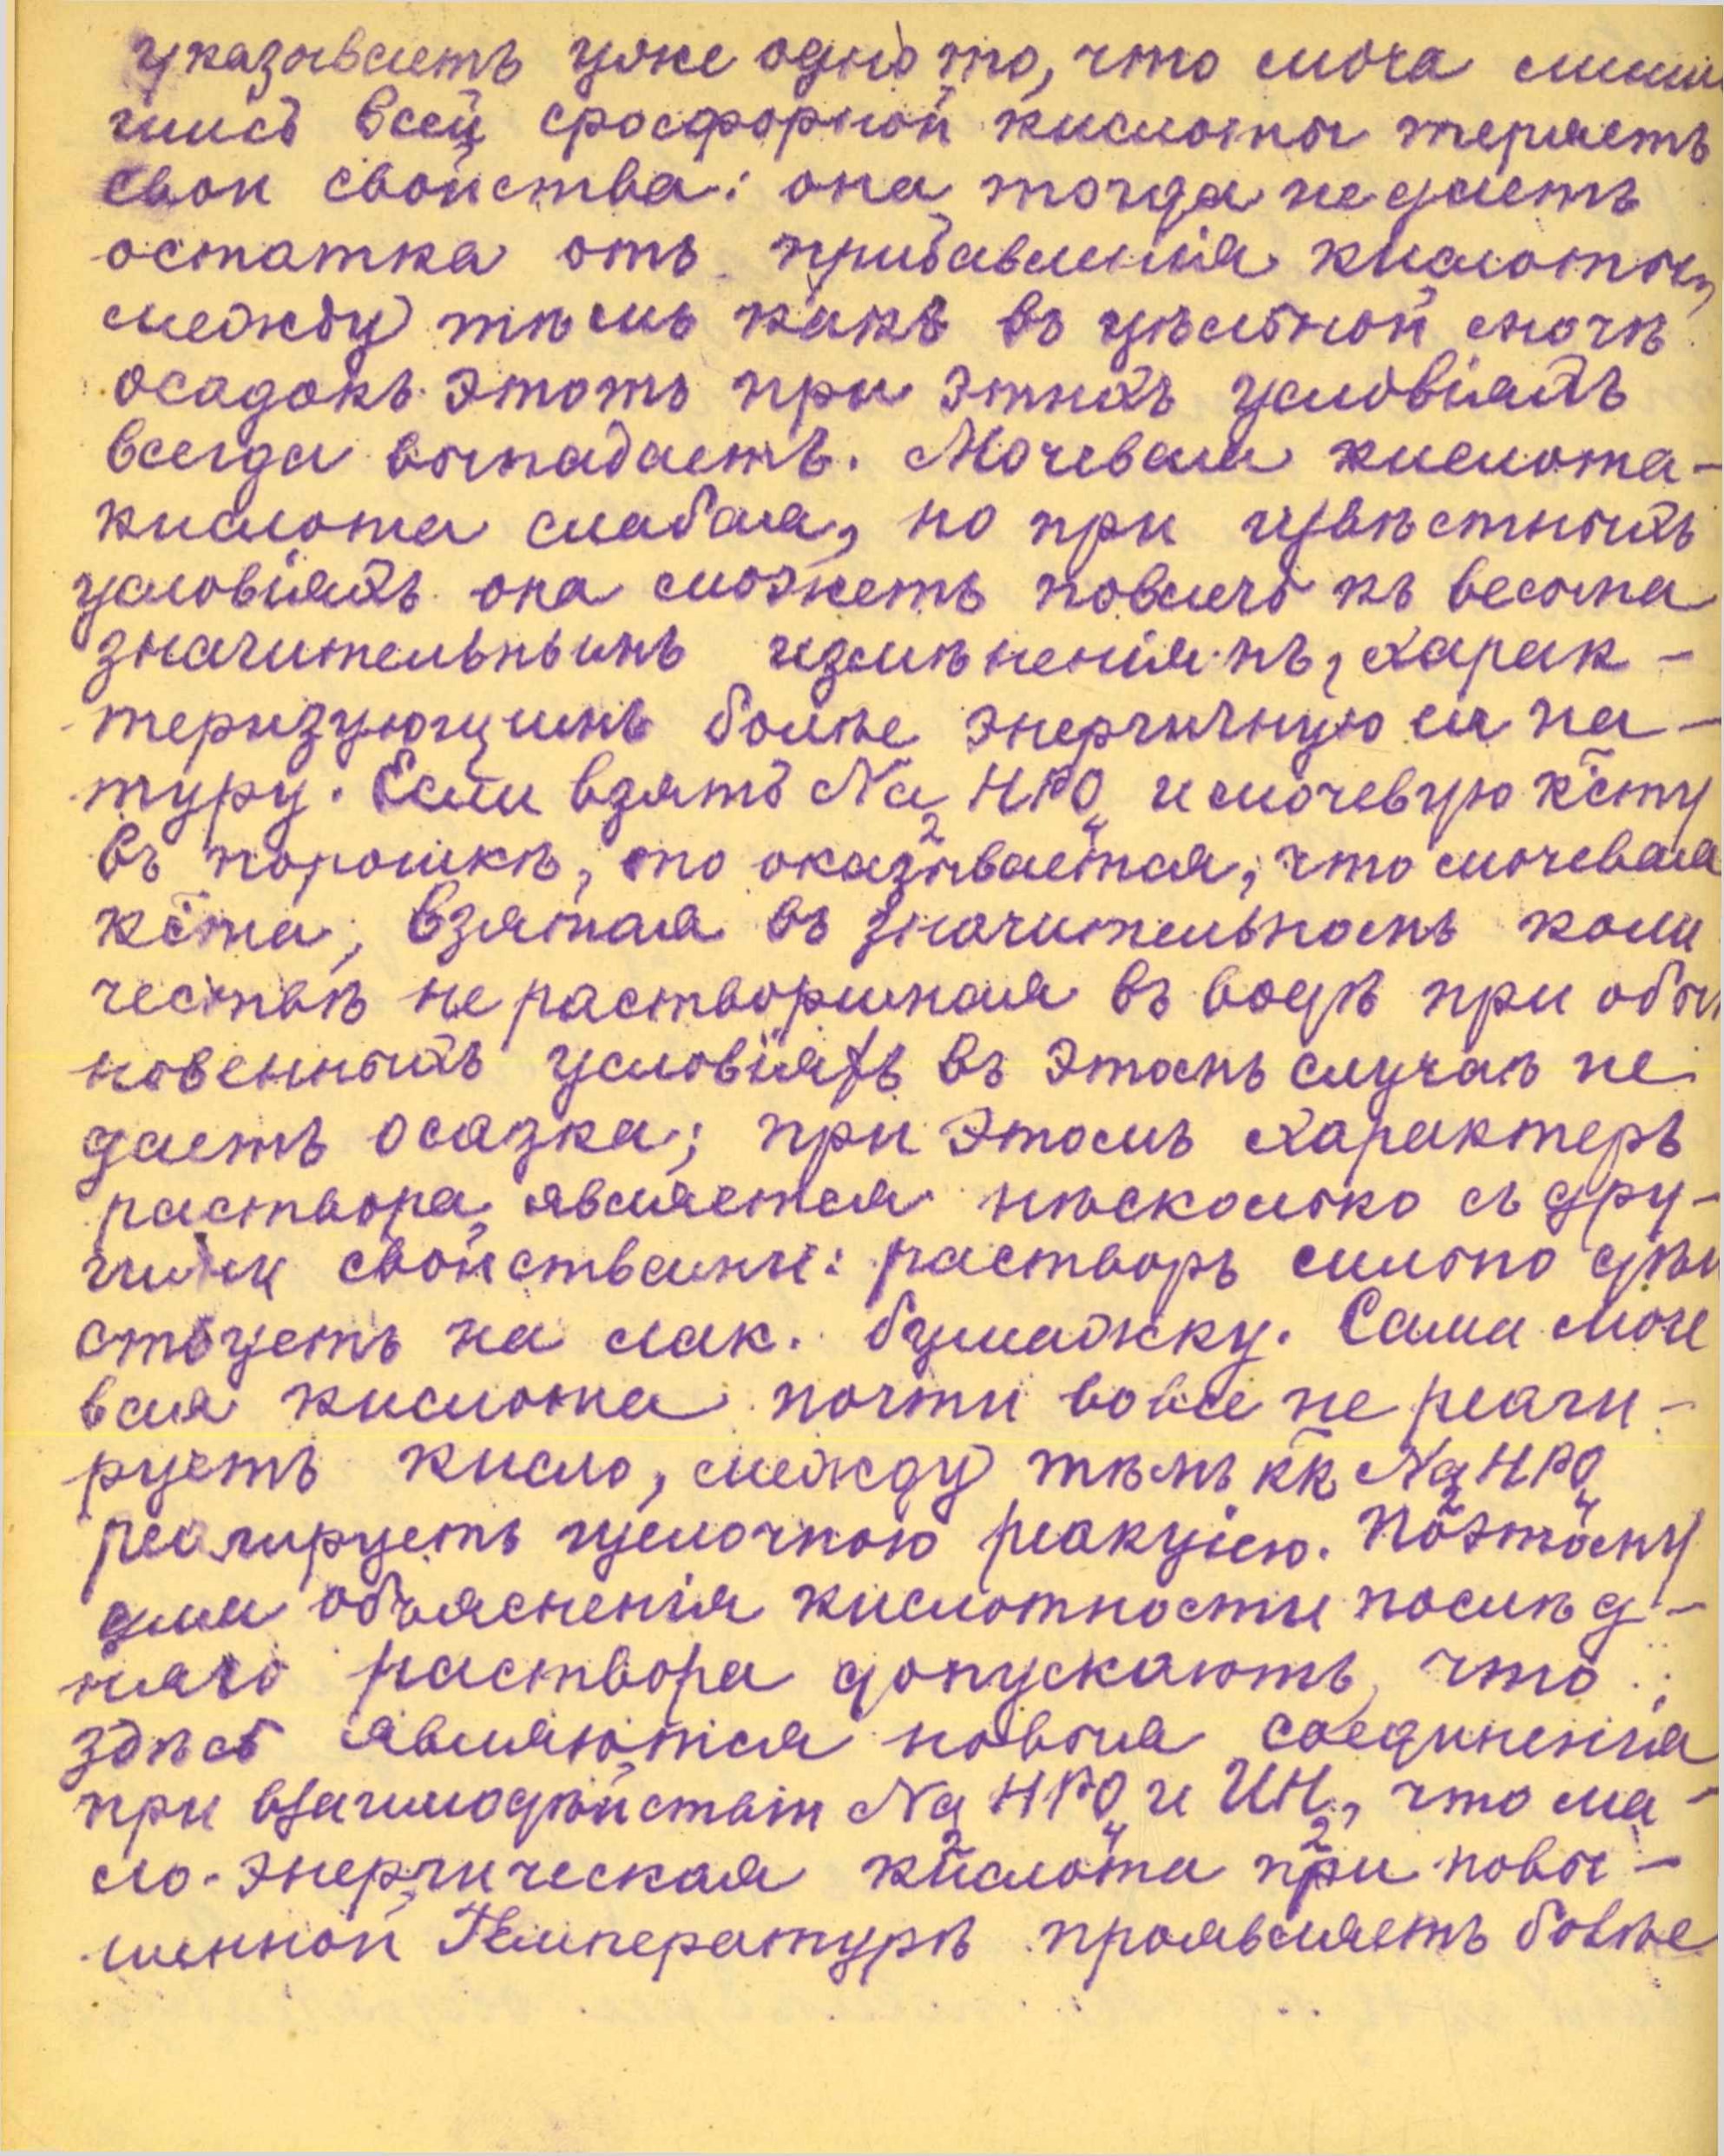 указываетъ уже одно то, что моча лиши
шись всей фосфорной кислоты теряетъ
свои свойства: она тогда не даетъ
остатка отъ прибавленія кислоты,
между тѣмъ какъ въ цѣльной мочѣ
осадокъ этотъ при этихъ условіяхъ
всегда выпадаетъ. Мочевая кислота-
кислота слабая, но при извѣстныхъ
условіяхъ она можетъ повлечь къ весьма
значительнымъ измѣненіямъ, харак-
теризующимъ болѣе энергичную ея на-
туру. Если взять Na2HPO4 и мочевую к̄сту
въ порошкѣ, то оказывается, что мочевая
к̄ста, взятая въ значительномъ коли
чествѣ не растворимая въ водѣ при обык
новенныхъ условіяхъ въ этомъ случаѣ не
даетъ осадка; при этомъ характеръ
раствора является нѣсколько съ дру-
гими свойствами: растворъ сильно дѣй
ствуетъ на лак. бумажку. Сама моче
вая кислота почти вовсе не реаги-
руетъ кисло, между тѣмъ к̄к Na2HPO4
реагируетъ щелочною реакціею. Поэтому
для объясненія кислотности послѣд-
няго раствора допускаютъ, что
здѣсь являются новыя соединенія
при взаимодѣйствіи Na2HPO4 и ИH2, что ма-
ло-энергическая кислота при повы-
шенной температурѣ проявляетъ болѣе